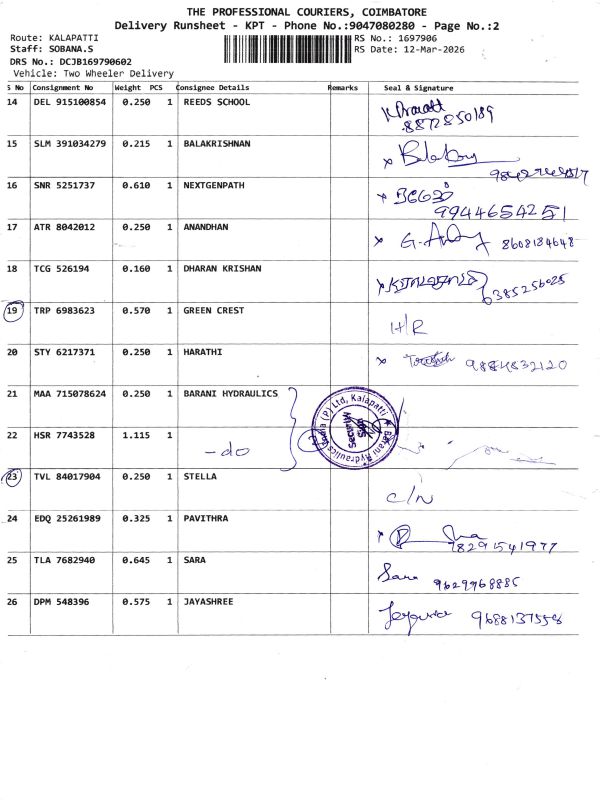 THE PROFESSIONAL COURIERS, COIMBATORE
Delivery Runsheet - KPT - Phone No.:9047080280 - Page No.:2
Route: KALAPATTI
RS No.: 1697906
Staff: SOBANA.S
RS Date: 12-Mar-2026
DRS No.: DCJB169790602
Vehicle: Two Wheeler Delivery
S No Consignment No Weight PCS Consignee Details Remarks Seal & Signature
14 DEL 915100854 0.250 1 REEDS SCHOOL
8872850189
15 SLM 391034279 0.215 1 BALAKRISHNAN
16 SNR 5251737 0.610 1 NEXTGENPATH
9944654251
17 ATR 8042012 0.250 1 ANANDHAN
8608184648
18 TCG 526194 0.160 1 DHARAN KRISHAN
6385256025
19 TRP 6983623 0.570 1 GREEN CREST H/R
20 STY 6217371 0.250 1 HARATHI 9884832120
21 MAA 715078624 0.250 1 BARANI HYDRAULICS
Barani Hydraulics India (P) Ltd, Kalapatti
Security
Sign
22 HSR 7743528 1.115 1 -do
23 TVL 84017904 0.250 1 STELLA C/N
24 EDQ 25261989 0.325 1 PAVITHRA
78291541977
25 TLA 7682940 0.645 1 SARA Sara 9629968885
26 DPM 548396 0.575 1 JAYASHREE 9688137558